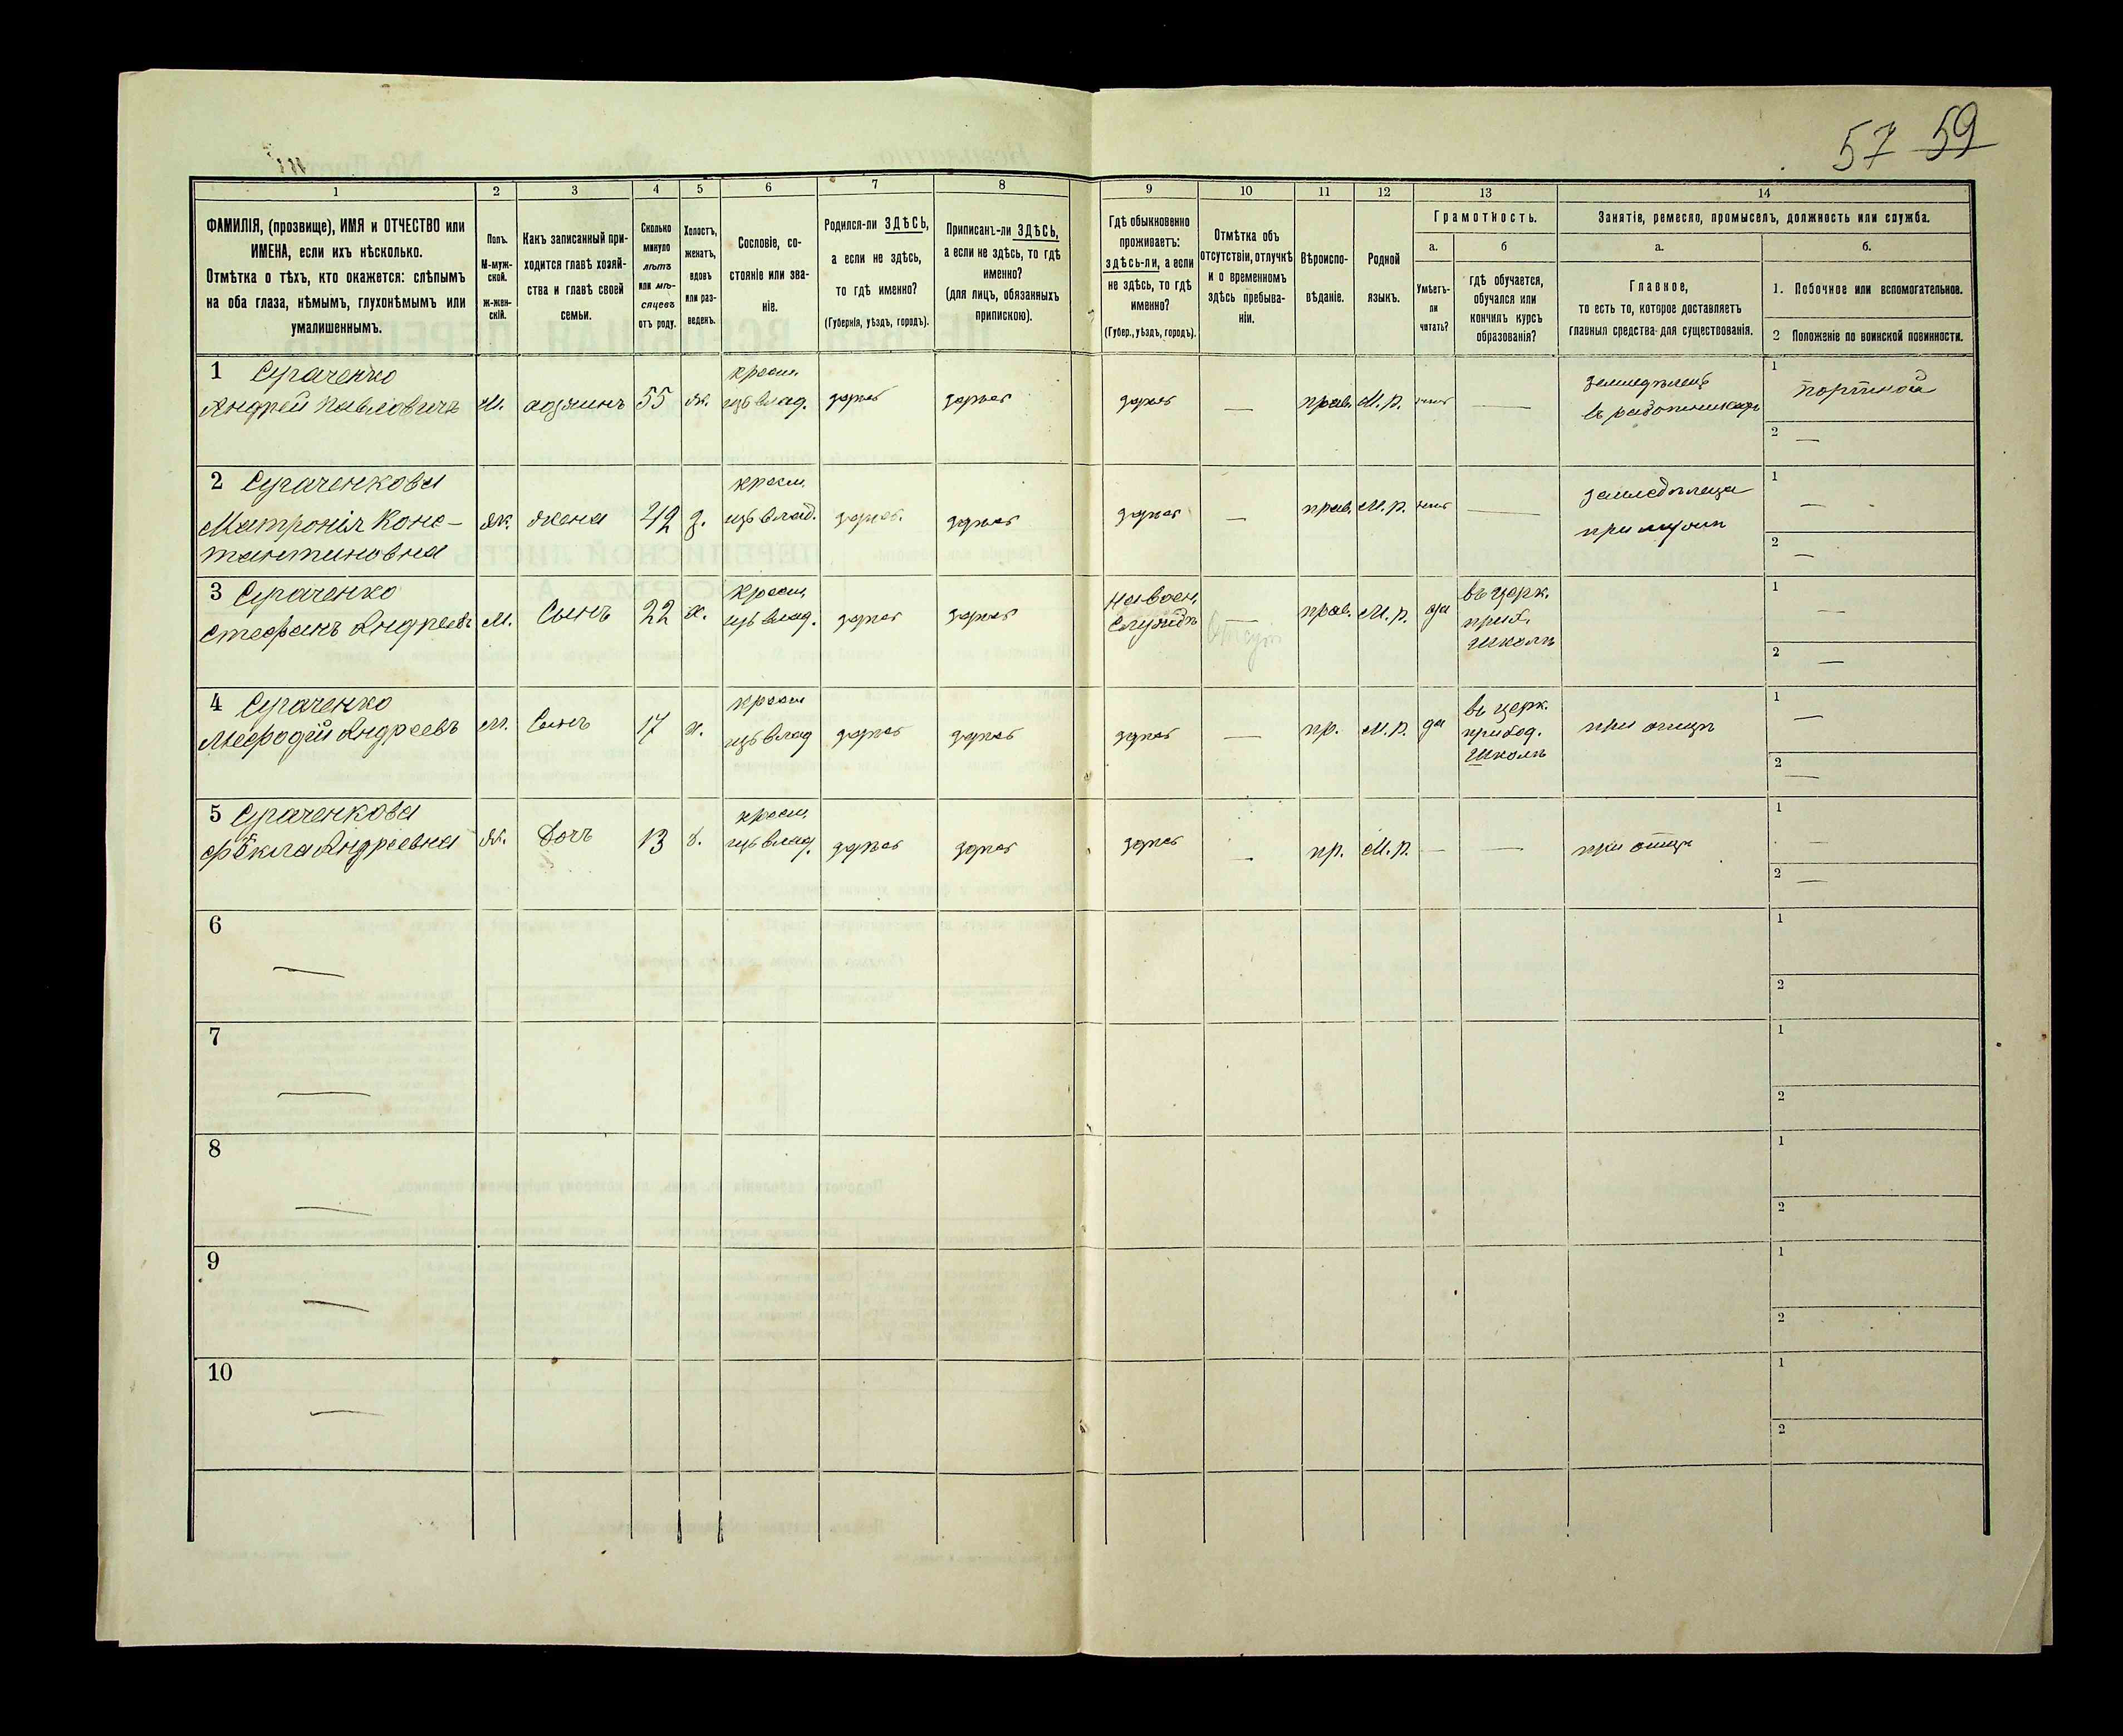 57 59
1 2 3 4 5 6 7 8 9 10 11 12 13 14
ФАМИЛІЯ, (прозвище), ИМЯ и ОТЧЕСТВО или
ИМЕНА, если ихъ нѣсколько.
Отмѣтка о тѣхъ, кто окажется: слѣпымъ
на оба глаза, нѣмымъ, глухонѣмымъ или
умалишеннымъ.
Полъ.
М-муж-
ской.
ж-жен-
скій.
Какъ записанный при-
ходится главѣ хозяй-
ства и главѣ своей
семьи.
Сколько
минуло
лѣтъ
или мѣ-
сяцевъ
отъ роду.
Холостъ,
женатъ,
вдовъ
или раз-
веденъ.
Сословіе, со-
стояніе или зва-
ніе.
Родился-ли ЗДѢСЬ,
а если не здѣсь,
то гдѣ именно?
(Губернія, уѣздъ, городъ).
Приписанъ-ли ЗДѢСЬ,
а если не здѣсь, то гдѣ
именно?
(для лицъ, обязанныхъ
припискою).
Гдѣ обыкновенно
проживаетъ:
здѣсь-ли, а если
не здѣсь, то гдѣ
именно?
(Губер., уѣздъ, городъ).
Отмѣтка объ
отсутствіи, отлучкѣ
и о временномъ
здѣсь пребыва-
ніи.
Вѣроиспо-
вѣданіе.
Родной
языкъ.
Грамотность.
а. б
Умѣетъ-
ли
читать?
гдѣ обучается,
обучался или
кончилъ курсъ
образованія?
Занятіе, ремесло, промыселъ, должность или служба.
а. б.
Главное,
то есть то, которое доставляетъ
главныя средства для существованія.
1. Побочное или вспомогательное.
2 Положеніе по воинской повинности.
1 Сураченко крест. земледѣлецъ 1
Андрей Павловичъ М. 55 ж. изъ влад. здѣсь здѣсь здѣсь — прав. М.р. — въ работникахъ портной
2 —
2 Сураченкова крест. земледѣлица 1
Матронія Конс- ж. жена 42 з. изъ влад. здѣсь. здѣсь здѣсь — прав. М.р. — при мужѣ —
тантиновна 2 —
3 Сураченко крест. На воен. въ церк. 1
Стефанъ Андреевъ м. Сынъ 22 х. изъ влад. здѣсь здѣсь Службѣ Отсут прав. М.р. да прих. —
школѣ 2 —
4 Сураченко крест. въ церк. 1
Мефодій Андреевъ м. Сынъ 17 х. изъ влад здѣсь здѣсь здѣсь — пр. М.р. да приход. при отцѣ —
школѣ 2 —
5 Сураченкова крест. 1
Фёкла Андреевна ж. Дочь 13 д. изъ влад. здѣсь здѣсь здѣсь — пр. М.р. — — при отцѣ —
2 —
6 — 1
2
7 — 1
2
8 — 1
2
9 — 1
2
10 — 1
2